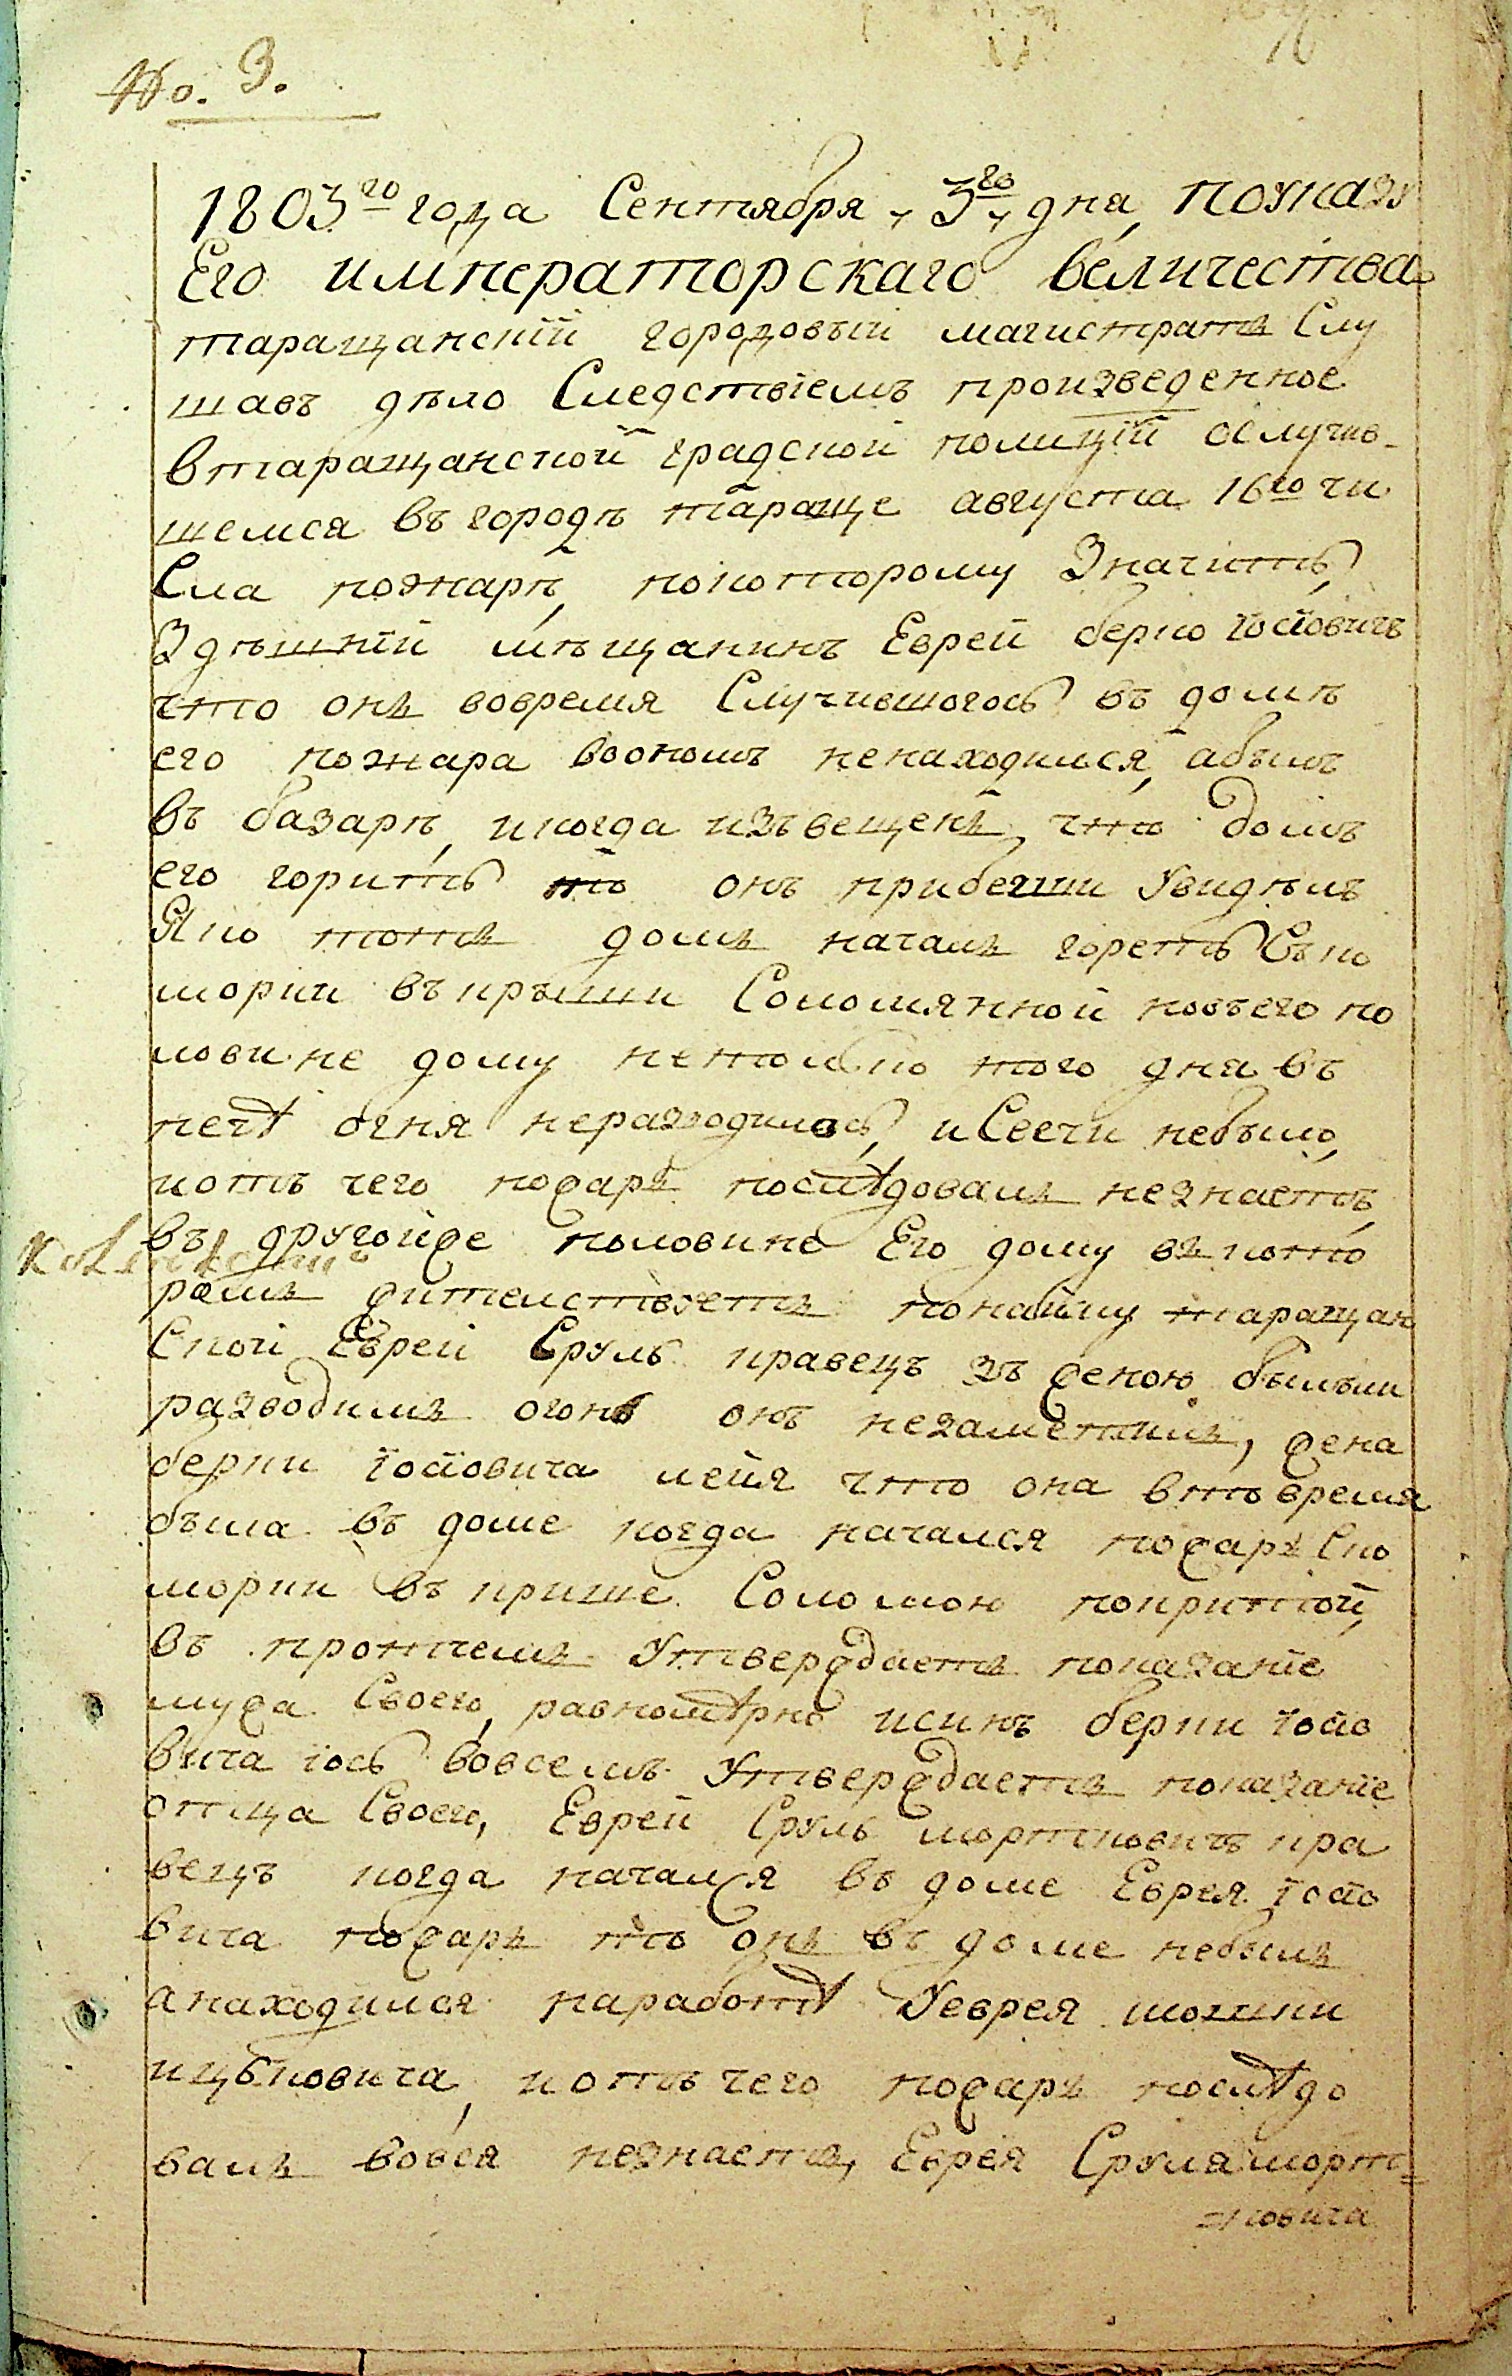 No. 3.
1803го года Сентября „3го„ дня, поуказу
Его императорскаго величества
таращанскїй городовый магистратъ Слу
шавъ дѣло Следствїемъ произведенное
втаращанской градской полицїи ослучив-
шемся въ городѣ тараще августа 16го чи
Сла пожарѣ, покоторому Значитъ,
Здѣшнїй мѣщанинъ Еврей берко їосїовичъ
что онъ вовремя Случившогось въ домѣ
его пожара воономъ ненаходился, абылъ
въ базарѣ, икогда извещенъ, что домъ
его горитъ то онъ прибегши Увидѣлъ
Яко тотъ домъ началъ горетъ Съко
морки въкрыши Соломянной новъего по
ловине дому нетолко того дня въ
печѣ огня неразводилось, иСвечи небыло,
иотъ чего пожаръ послѣдовалъ незнаетъ,
въ другойже половине Его дому въкото
ромъ жителствуетъ понайму таращан
Ской Еврей Сруль кравецъ зъ женою былъли
разводимъ огонь онъ незаметилъ, жена
берки їосїовича лейя что она втовремя
была въ доме когда начался пожаръ Ско
морки въ крише Соломою покритой,
въ протчемъ Утверждаетъ показанїе
мужа Своего, равномѣрно исинъ берки їосїо
вича їось вовсемъ Утверждаетъ показанїе
отца Своего, Еврей Сруль мортковичъ кра
вецъ когда начался въ доме Еврея їосїо
вича пожаръ то онъ въ доме небылъ
анаходился наработѣ Уеврея мошки
ицковича, иотъ чего пожаръ послѣдо
валъ вовся незнаетъ, Еврея Сруля морт=
=ковича